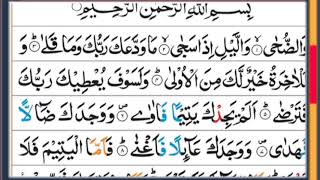 بِسْمِ اللّٰهِ الرَّحْمٰنِ الرَّحِيْمِ
وَالضُّحٰى ۙ‏ ١ وَالَّيْلِ اِذَا سَجٰى ۙ‏ ٢ مَا وَدَّعَكَ رَبُّكَ وَمَا قَلٰى ؕ‏ ٣ وَ
لَلْاٰخِرَةُ خَيْرٌ لَّكَ مِنَ الْاُوْلٰى ؕ‏ ٤ وَلَسَوْفَ يُعْطِيْكَ رَبُّكَ
فَتَرْضٰى ؕ‏ ٥ اَلَمْ يَجِدْكَ يَتِيْمًا فَاٰوٰى ۪‏ ٦ وَوَجَدَكَ ضَآلًّا
فَهَدٰى ۪‏ ٧ وَوَجَدَكَ عَآئِلًا فَاَغْنٰى ؕ‏ ٨ فَاَمَّا الْيَتِيْمَ فَلَا